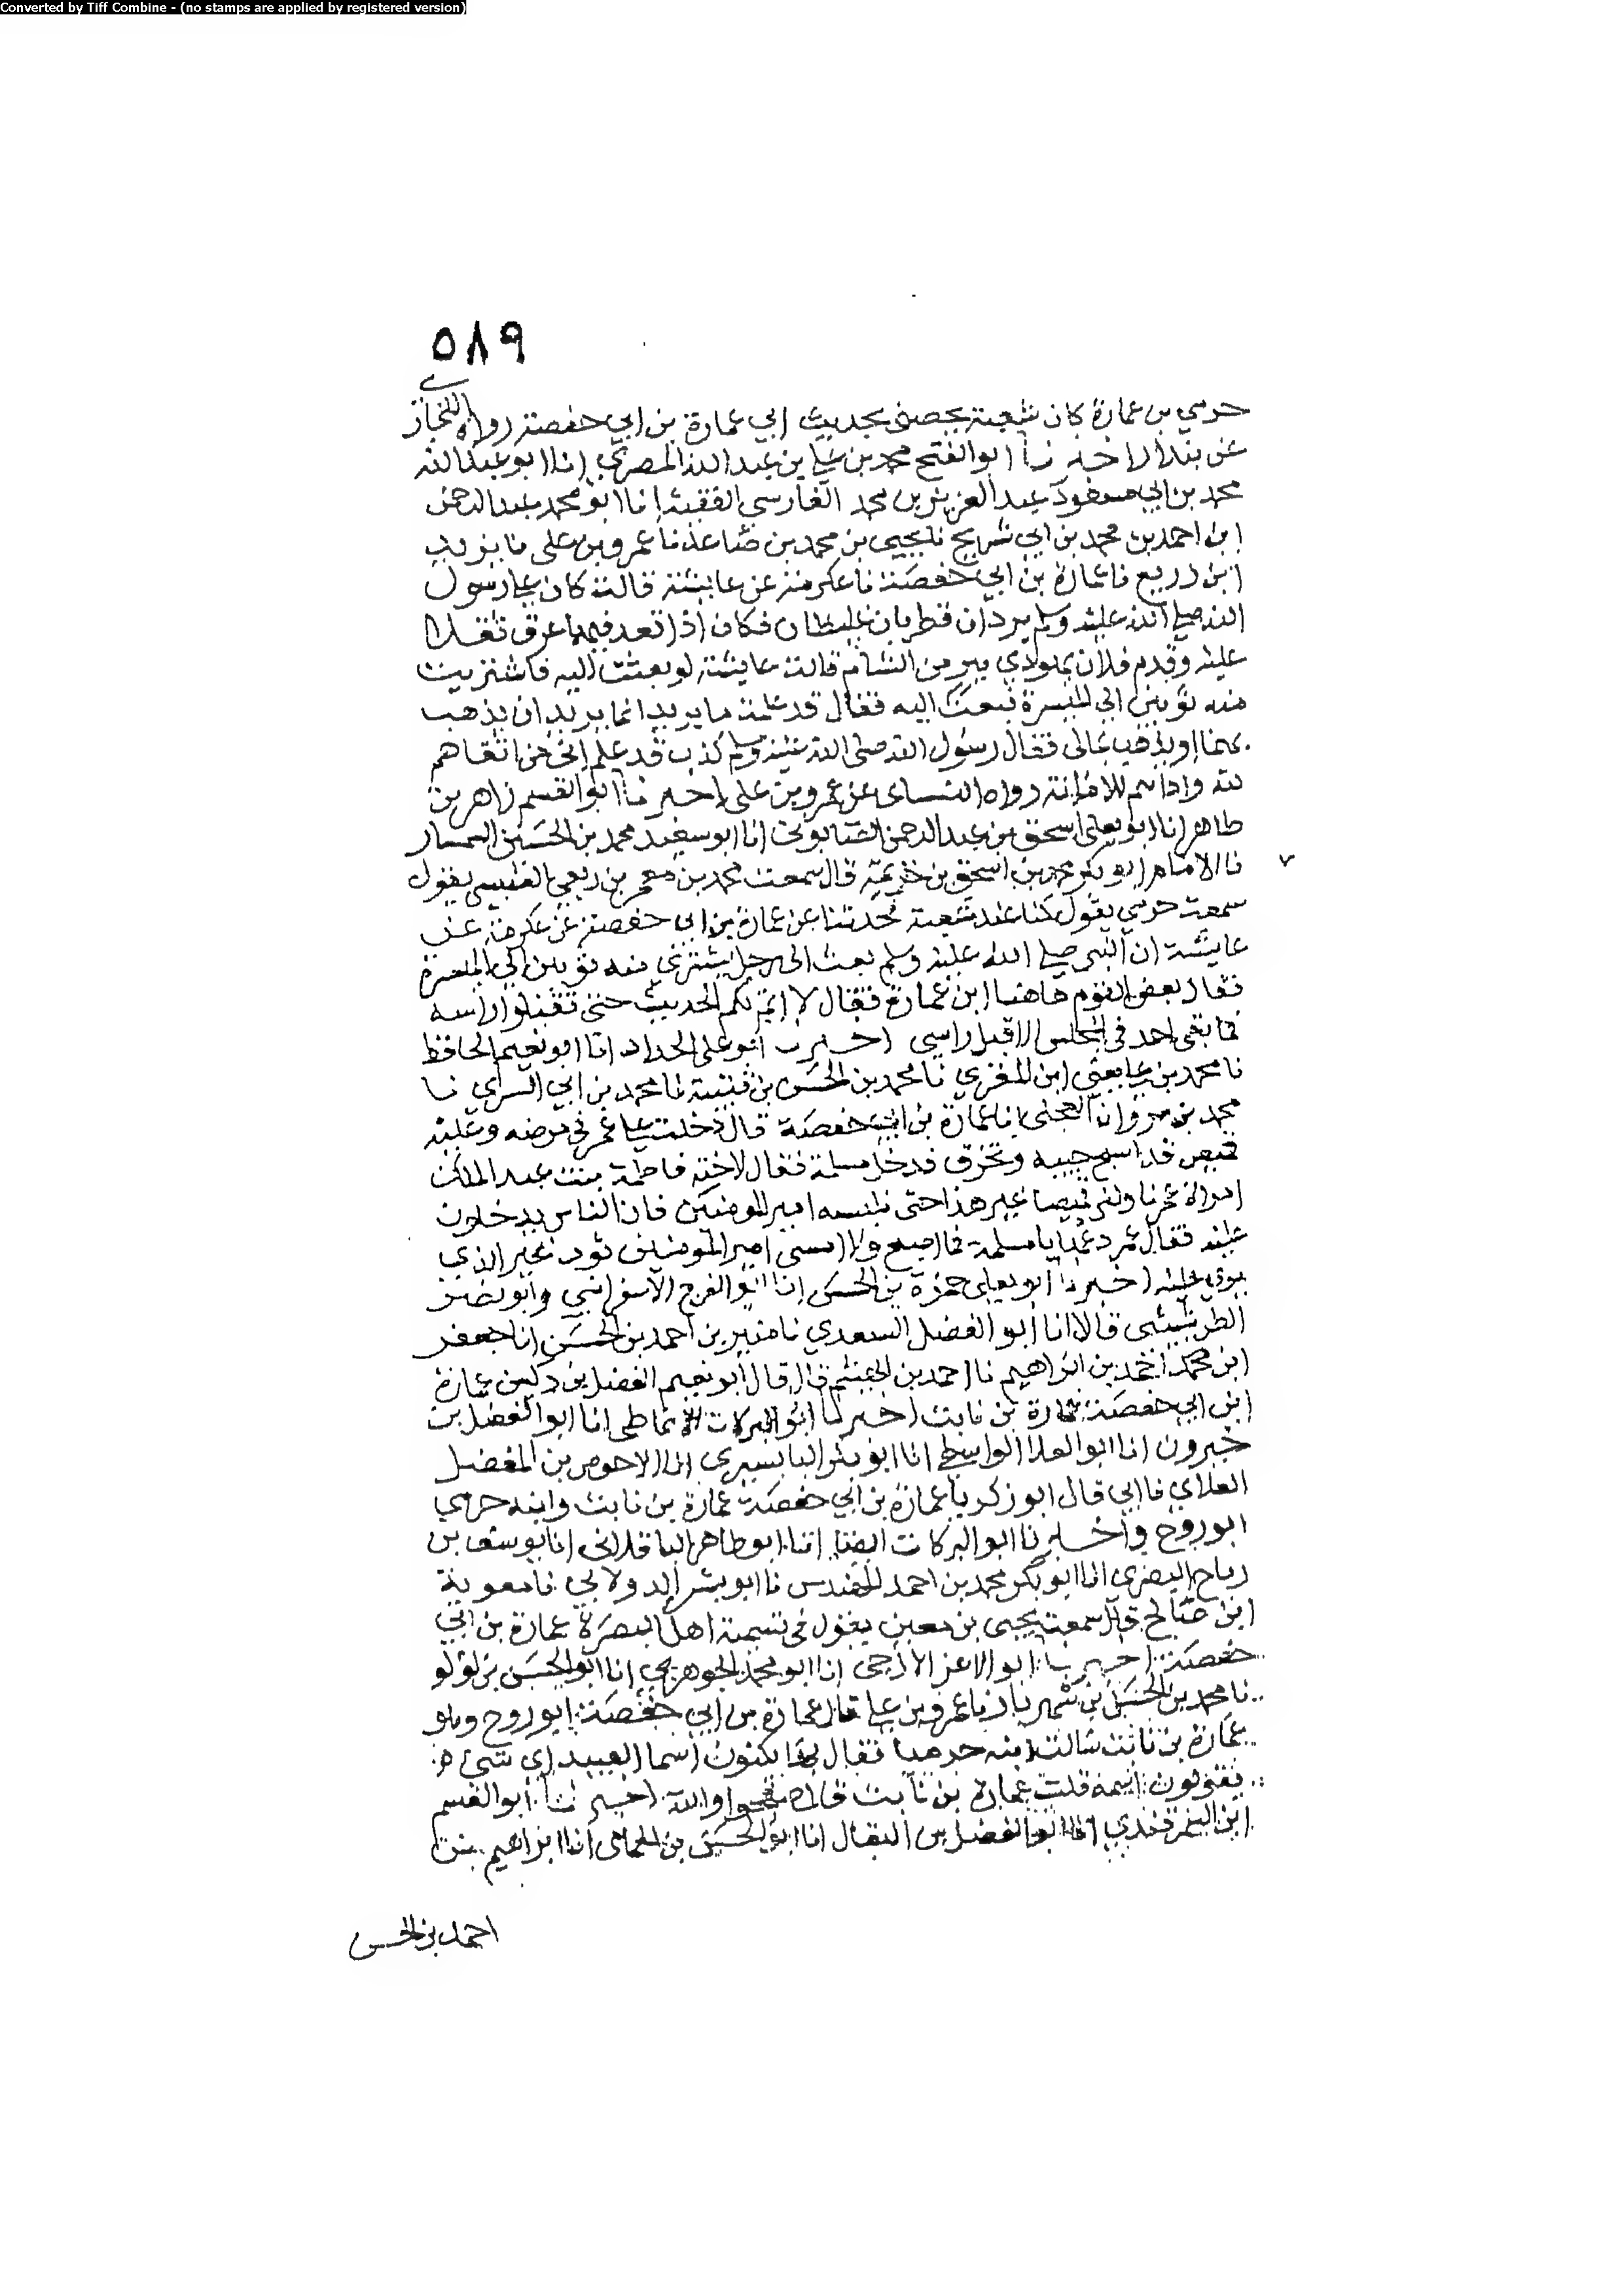 Converted by Tiff Combine - (no stamps are applied by registered version)
٥٨٩
حرمي بن عمارة كان شعبة بحديث ابي عمارة بن ابي حفصة رواه
عن بندار اخبرنا ابو الفتح محمد بن علي بن عبد الله المصري انا ابو عبد الله
محمد بن ابي مسعود عبد العزيز بن محمد الفارسي الفقيه انا ابو محمد عبد الرحمن
ابن احمد بن محمد بن ابي شريح نا يحيى بن محمد بن صاعد نا عمرو بن على نا يزيد
ابن زريع نا عمارة بن ابي حفصة نا عكرمة عن عايشة قالت كان على رسول
الله صلى الله عليه وسلم بردان قطريان غليظان فكان اذا قعد فيهما عرق ثقلا
عليه وقدم فلان من الشام قالت عايشة لو بعثت اليه فاشتريت
منه ثوبين الى الميسرة فبعث اليه فقال قد علمت ما يريد انما يريد ان يذهب
بهما او يذهب بمالى فقال رسول الله صلى الله عليه وسلم كذب قد علم انى من اتقاهم
لله واداهم للامانة رواه النساى عن عمرو بن على اخبرنا ابو القسم زاهر بن
طاهر انا ابو يعلى اسحق بن عبد الرحمن الصابونى انا ابو سعيد محمد بن الحسين السمسار
نا الامام ابو بكر محمد بن اسحق بن خزيمة قال سمعت محمد بن معمر بن ربعي القيسي يقول
سمعت حرمي يقول كنا عند شعبة فحدثنا عن عمارة بن ابي حفصة عن عكرمة عن
عايشة ان النبي صلى الله عليه وسلم بعث الى رجل يشترى منه ثوبين الى الميسرة
فقال بعض القوم هاهنا ابن عمارة فقال لا اتم لكم الحديث حتى تقبلوا راسه
فما بقى احد فى المجلس الا قبل راسي اخبرنا ابو على الحداد انا ابو نعيم الحافظ
نا محمد بن علي يعني ابن المقرى نا محمد بن الحسن بن قتيبة نا محمد بن ابي السري نا
محمد بن مروان العجلى انا عمارة بن ابي حفصة قال دخلت على عمر في مرضه وعليه
قميص قد جيبه وتخرق فدخل مسلمة فقال لاخته فاطمة بنت عبد الملك
امراة عمر ناولينى قميصا غير هذا حتى نلبسه امير المومنين فان الناس يدخلون
عليه فقال عمر دعها يا مسلمة فما اصبح ولا امسى امير المومنين ثوب غير الذي
يرى عليه اخبرنا ابو يعلى حمزة بن الحسن انا ابو الفرج الاسفرايني وابو نصر
الطريثيثى قالا انا ابو الفضل السعدي نا منير بن احمد بن الحسن انا جعفر
ابن محمد احمد بن ابراهيم نا احمد بن الهيثم قال قال ابو نعيم الفضل بن دكين عمارة
ابن ابي حفصة عمارة بن نابت اخبرنا ابو البركات الانماطى انا ابو الفضل بن
خيرون انا ابو العلا الواسطى انا ابو بكر البابسيرى انا الاحوص بن المفضل
الغلابي نا ابي قال ابو زكريا عمارة بن ابي حفصة عمارة بن نابت وابنه حرمي
ابو روح واخبرنا ابو البركات ايضا انا ابو طاهر الباقلانى انا يوسف بن
رباح البصرى انا ابو بكر محمد بن احمد المهندس نا ابو بشر الدولابي نا معوية
ابن صالح قال سمعت يحيى بن معين يقول في تسمية اهل البصرة عمارة بن ابي
حفصة اخبرنا ابو الاعز الازجى انا ابو محمد الجوهري انا ابو الحسن بن لولو
نا محمد بن الحسين بن شهريار نا عمرو بن علي قال عمارة بن ابي حفصة ابو روح وهو
عمارة بن نابت سالت ابنه حرميا فقال اسما العبيد اي شى
يقولون اسمه قلت عمارة بن نابت قال والله اخبرنا ابو القسم
ابن السمرقندي انا ابو الفضل بن البقال انا ابو الحسن بن الحمامى انا ابراهيم بن
احمد بن الحسن